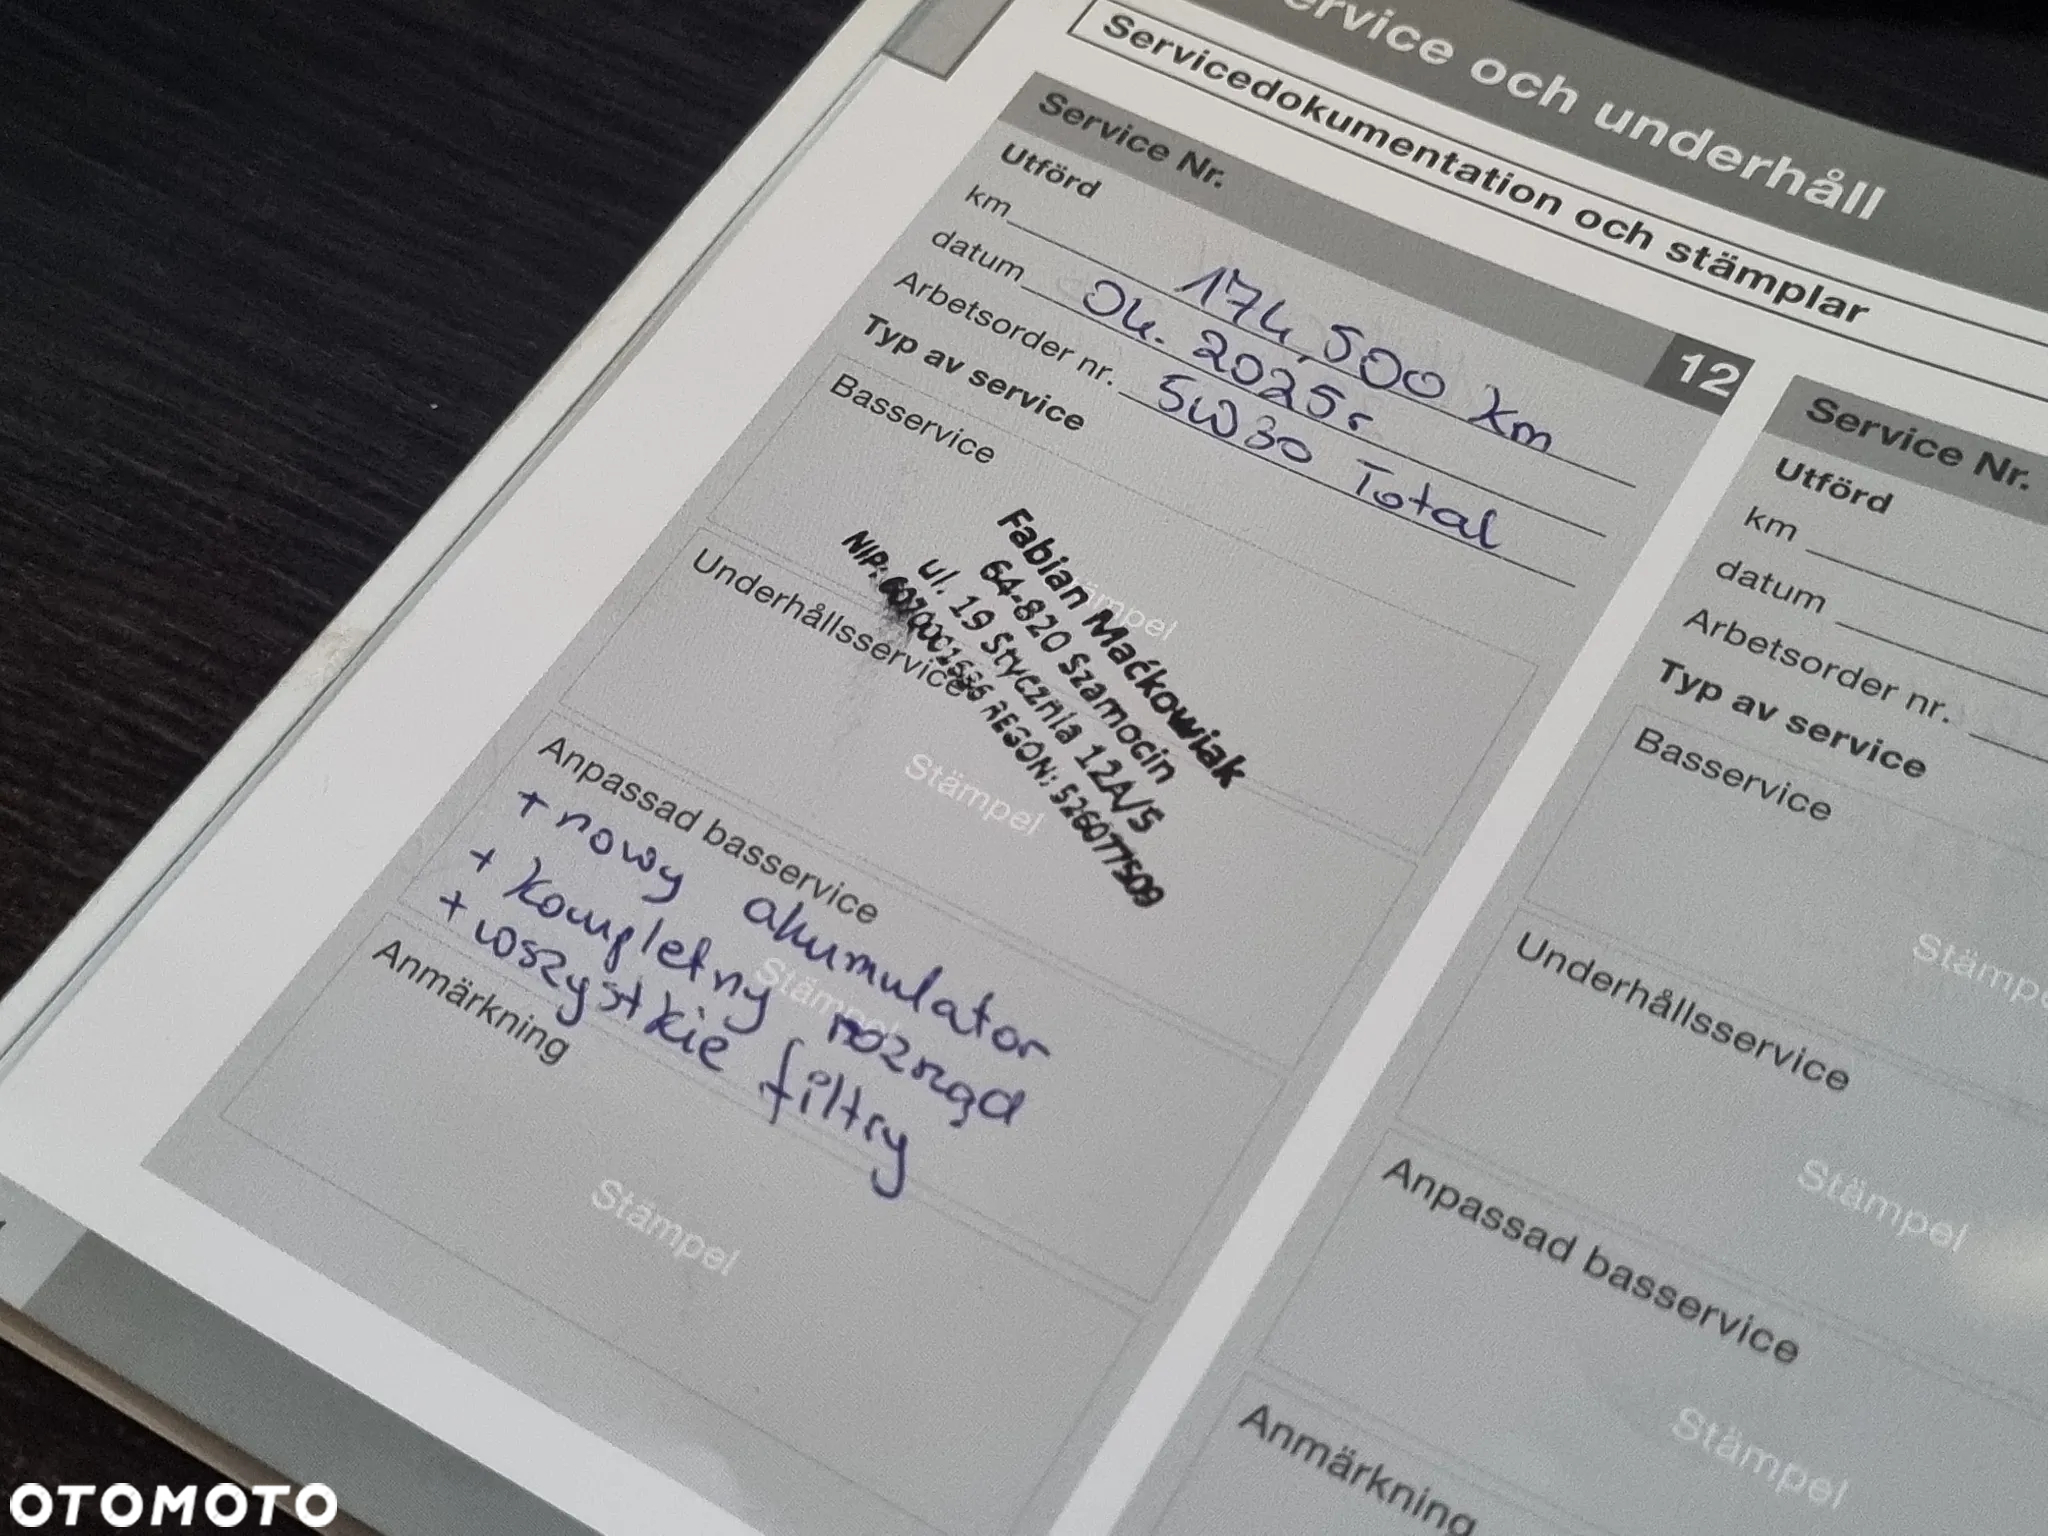 ervice och underhåll
Servicedokumentation och stämplar
Service Nr.
12
Utförd
km 174,500 km
datum 04. 2025r
Arbetsorder nr. 5W30 Total
Typ av service
Basservice
Stämpel
Fabian Maćkowiak
64-820 Szamocin
ul. 19 Stycznia 12A/5
NIP: REGON: 526077509
Underhållsservice
Stämpel
Anpassad basservice
+ nowy akumulator
+ kompletny rozrząd
+ wszystkie filtry
Stämpel
Anmärkning
Stämpel
Service Nr.
Utförd
km
datum
Arbetsorder nr.
Typ av service
Basservice
Stämpe
Underhållsservice
Stämpel
Anpassad basservice
Stämpel
Anmärkning
OTOMOTO